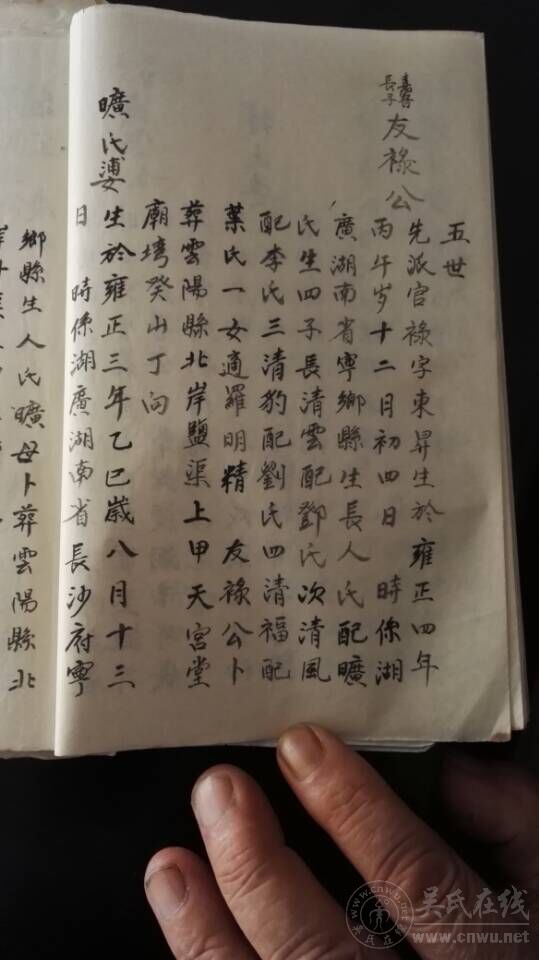 五世
長子
友祿公
先派官祿字東昇生於雍正四年
丙午岁十二月初四日 時係湖
廣湖南省寧鄉縣生長人氏配曠
氏生四子長清雲配鄧氏次清風
配李氏三清豹配劉氏四清福配
葉氏一女適羅明精 友祿公卜
葬雲陽縣北岸鹽渠上甲天宮堂
廟塆癸山丁向
曠氏婆
生於雍正三年乙巳歲八月十三
日 時係湖廣湖南省長沙府寧
鄉縣生人氏曠母卜葬雲陽縣北
吴氏在线
www.cnwu.net
吴氏在线